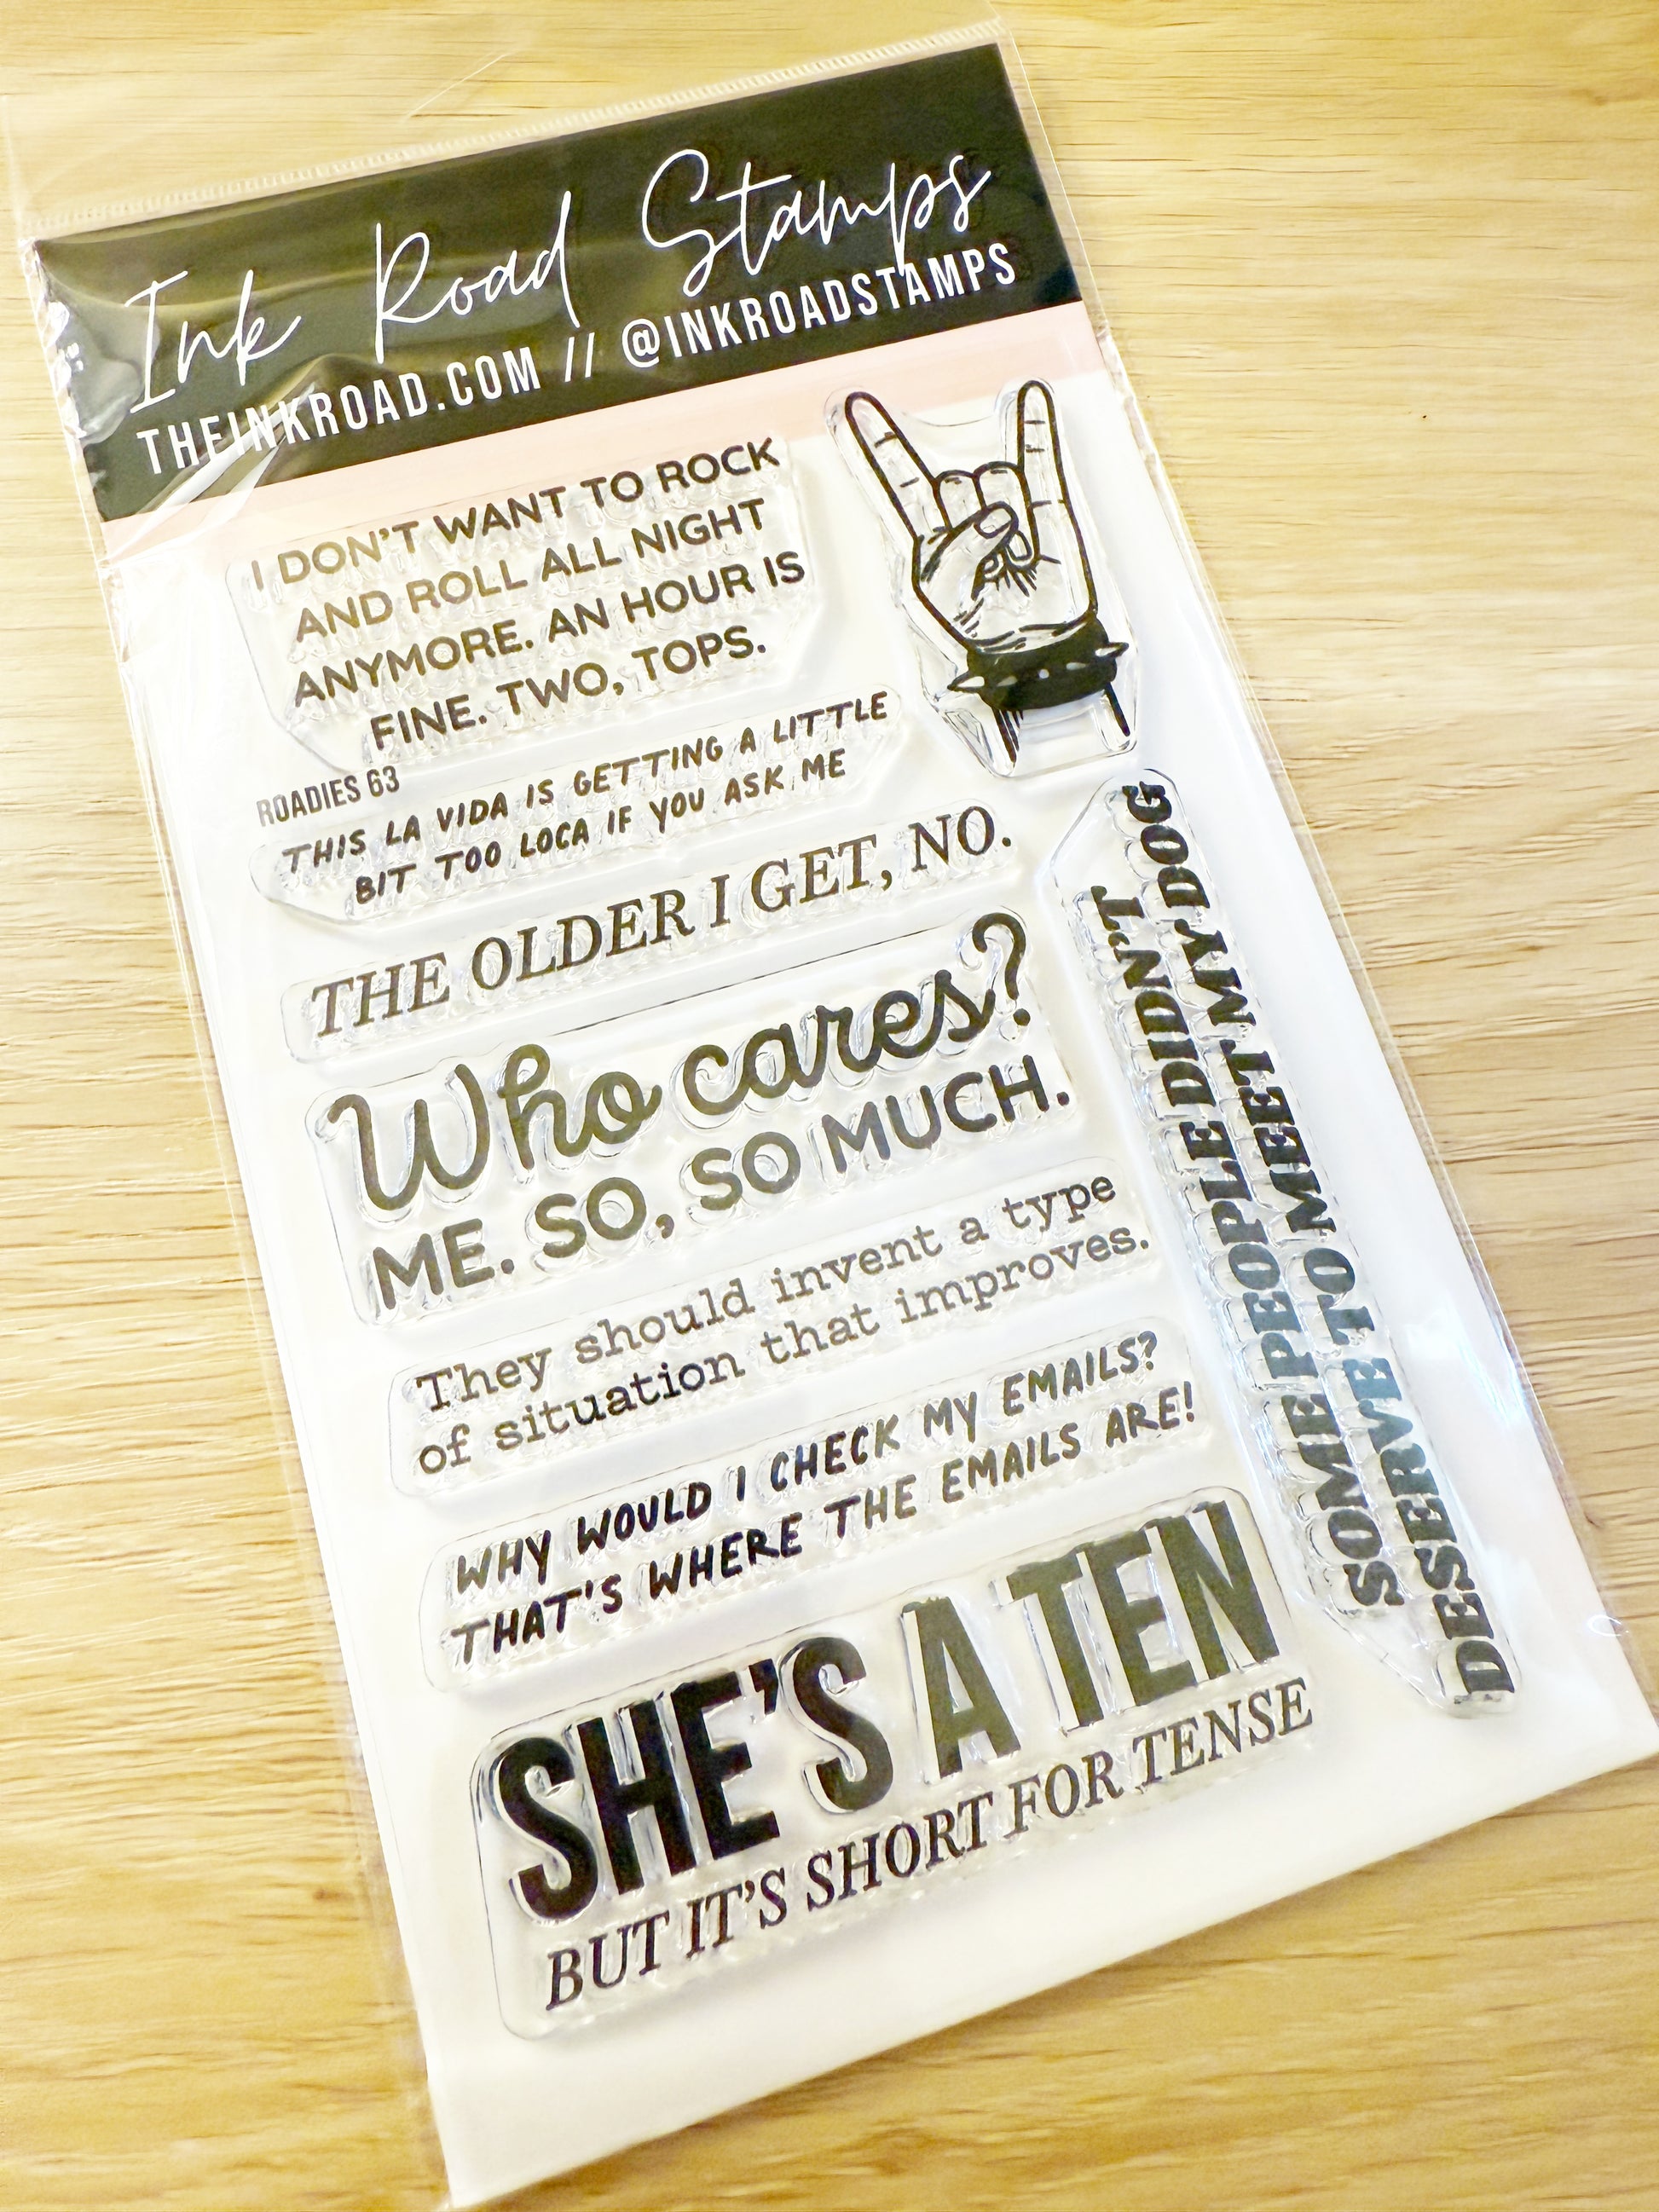 Ink Road Stamps
THEINKROAD.COM // @INKROADSTAMPS
I DON'T WANT TO ROCK
AND ROLL ALL NIGHT
ANYMORE. AN HOUR IS
FINE. TWO, TOPS.
ROADIES 63
THIS LA VIDA IS GETTING A LITTLE
BIT TOO LOCA IF YOU ASK ME
THE OLDER I GET, NO.
Who cares?
ME. SO, SO MUCH.
They should invent a type
of situation that improves.
WHY WOULD I CHECK MY EMAILS?
THAT'S WHERE THE EMAILS ARE!
SHE'S A TEN
BUT IT'S SHORT FOR TENSE
SOME PEOPLE DIDN'T
DESERVE TO MEET MY DOG